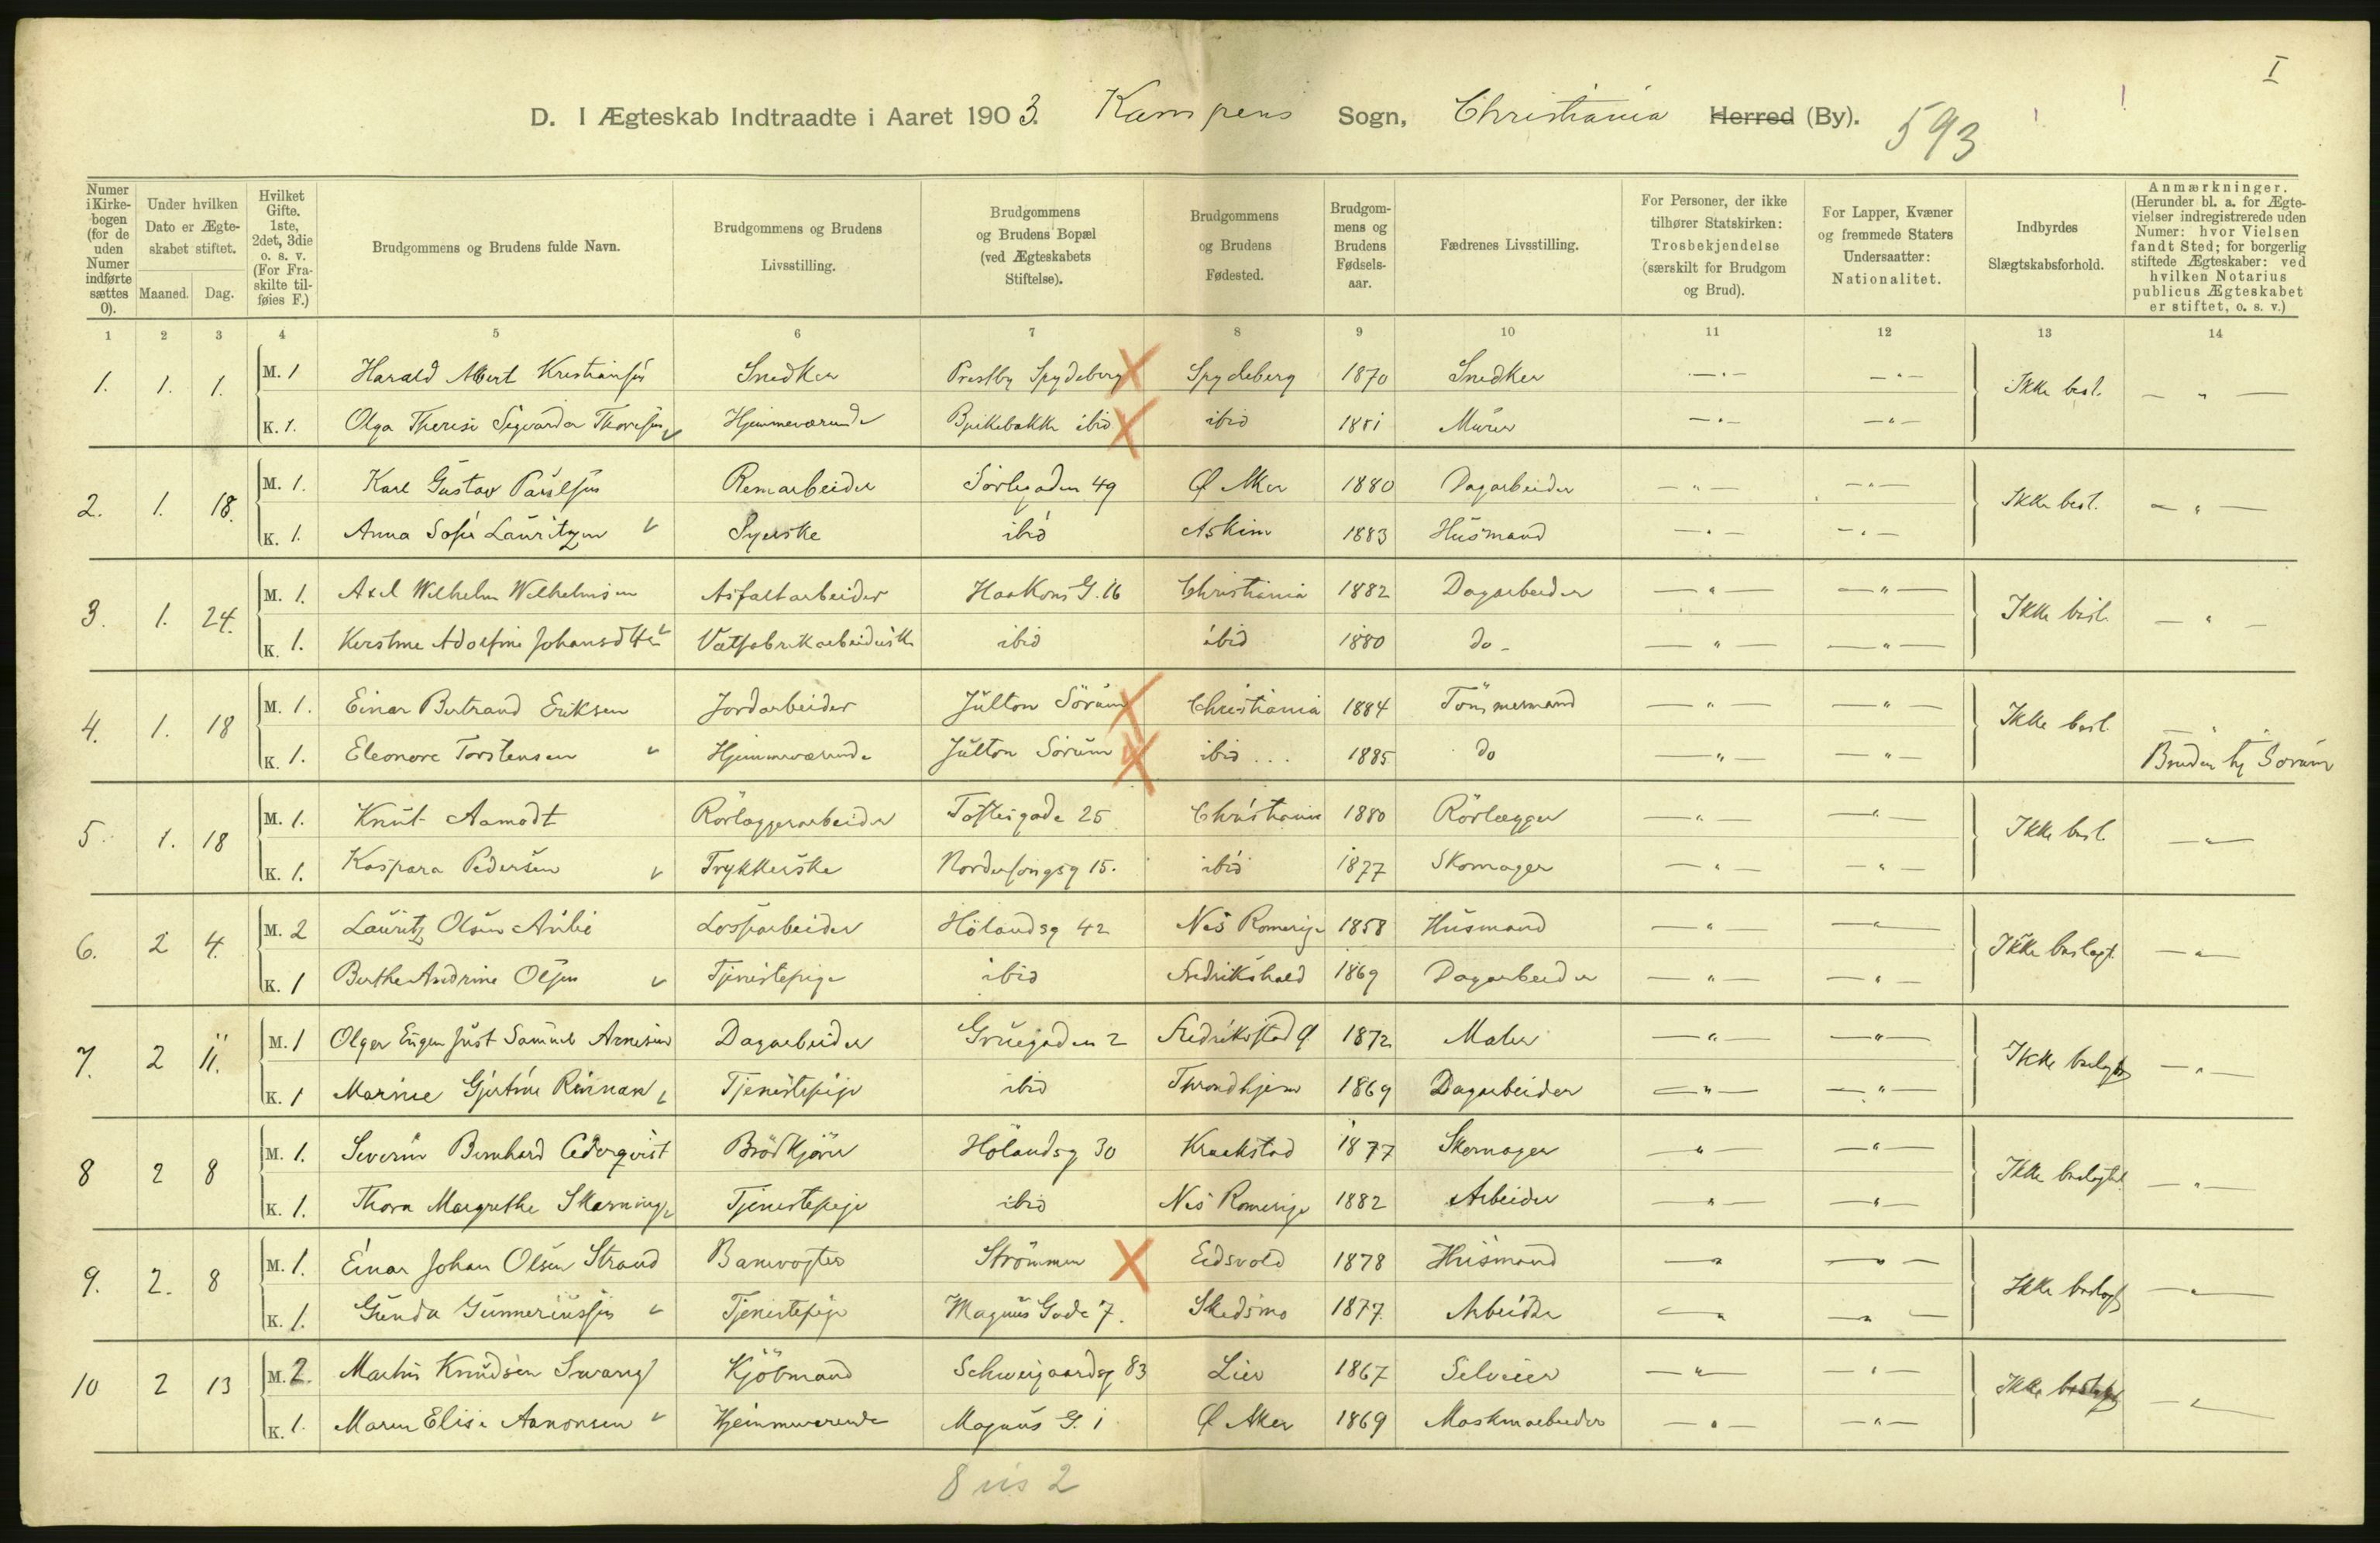 I
D. I Ægteskab Indtraadte i Aaret 1903. Kampens Sogn, Christiania Herred (By). 593
Numer i Kirkebogen (for de uden Numer indførte sættes 0).
Under hvilken Dato er Ægteskabet stiftet.
Maaned. Dag.
Hvilket Gifte. 1ste, 2det, 3die o. s. v. (For Fraskilte tilføies F.)
Brudgommens og Brudens fulde Navn.
Brudgommens og Brudens Livsstilling.
Brudgommens og Brudens Bopæl (ved Ægteskabets Stiftelse).
Brudgommens og Brudens Fødested.
Brudgommens og Brudens Fødselsaar.
Fædrenes Livsstilling.
For Personer, der ikke tilhører Statskirken: Trosbekjendelse (særskilt for Brudgom og Brud).
For Lapper, Kvæner og fremmede Staters Undersaatter: Nationalitet.
Indbyrdes Slægtskabsforhold.
Anmærkninger. (Herunder bl. a. for Ægtevielser indregistrerede uden Numer: hvor Vielsen fandt Sted; for borgerlig stiftede Ægteskaber: ved hvilken Notarius publicus Ægteskabet er stiftet, o. s. v.)
1 2 3 4 5 6 7 8 9 10 11 12 13 14
1. 1. 1. M. 1 Harald Albert Kristiansen Snedker Spydeberg Spydeberg 1870 Snedker — " — — " — Ikke besl. — " —
K. 1. Olga Therese Sigvarda Thoresen Hjemmeværende ibid ibid 1881 Murer — " — — " —
2. 1. 18. M. 1. Karl Gustav Paulsen Remarbeider Sörligaden 49 Ø Aker 1880 Dagarbeider — " — — " — Ikke besl. — " —
K. 1. Anna Sofie Lauritzen Syerske ibid Askim 1883 Husmand — " — — " —
3. 1. 24. M. 1. Axel Wilhelm Wilhelmsen Asfaltarbeider Haakons G. 16 Christiania 1882 Dagarbeider — " — — " — Ikke besl. — " —
K. 1. Adolfine ibid ibid 1880 do — " — — " —
4. 1. 18 M. 1. Einar Bertrand Eriksen Jordarbeider Jülton Sörum Christiania 1884 Tömmermand — " — — " — Ikke besl. "
K. 1. Eleonore Torstensen Hjemmeværende Jülton Sörum ibid 1885 do — " — — " — Bruden Sörum
5. 1. 18 M. 1. Knut Aamodt Rörlæggerarbeider Toftesgade 25 Christiania 1880 Rörlægger — " — — " — Ikke besl. — " —
K. 1. Kaspara Pedersen Trykkerske 15. ibid 1877 Skomager — " — — " —
6. 2 4. M. 2 Lauritz Olsen Hölandsg 42 Nes Romerige 1858 Husmand — " — — " — Ikke beslegt. — " —
K. 1 Berthe Andrine Olsen Tjenestepige ibid Fredrikshald 1869 Dagarbeider — " — — " —
7. 2 11. M. 1 Olger Eugen Just Samuel Arnesen Dagarbeider Gruegaden 2 Fredrikstad 1872 Maler — " — — " — Ikke beslegt — " —
K. 1 Marnie Gjertine Rinnan Tjenestepige ibid Throndhjem 1869 Dagarbeider — " — — " —
8 2 8 M. 1. Severin Bernhard Cederqvist Brödkjörer Hölandsg 30 Kraakstad 1877 Skomager — " — — " — Ikke beslegtet — " —
K. 1. Thora Margrethe Skarning Tjenestepige ibid Nes Romerige 1882 Arbeider — " — — " —
9. 2. 8 M. 1. Einar Johan Olsen Strand Banevogter Strömmen Eidsvold 1878 Husmand — " — — " — Ikke beslegt — " —
K. 1. Gunda Gunneriussen Tjenestepige Magnus Gade 7. Skedsmo 1877 Arbeider — " — — " —
10 2 13 M. 2. Martin Knudsen Kjöbmand Schweigaardsg 83 Lier 1867 Selveier — " — — " — Ikke beslegt — " —
K. 1. Maren Elise Aanonsen Hjemmeværende Magnus G. 1 Ø Aker 1869 Maskinarbeider — " — — " —